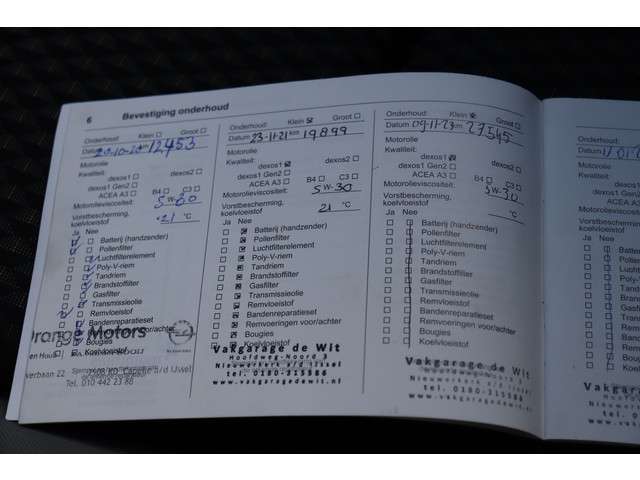 6 Bevestiging onderhoud
Onderhoud: Klein Groot
Datum 12453
Motorolie
Kwaliteit:
dexos1 dexos2
dexos1 Gen2 B4 C3
ACEA A3
Motorolieviscositeit:
5W-30
Vorstbescherming, koelvloeistof -21 °C
Ja Nee
Batterij (handzender)
Pollenfilter
Luchtfilterelement
Poly-V-riem
Tandriem
Brandstoffilter
Gasfilter
Transmissieolie
Remvloeistof
Bandenreparatieset
Remvoeringen voor/achter
Bougies
Koelvloeistof
Orange Motors
2908 KD Capelle a/d IJssel
Tel. 010 442 23 86
Onderhoud: Klein Groot
Datum 23-11-21 km 19899
Motorolie
Kwaliteit:
dexos1 dexos2
dexos1 Gen2 B4 C3
ACEA A3
Motorolieviscositeit:
5W-30
Vorstbescherming, koelvloeistof 21 °C
Ja Nee
Batterij (handzender)
Pollenfilter
Luchtfilterelement
Poly-V-riem
Tandriem
Brandstoffilter
Gasfilter
Transmissieolie
Remvloeistof
Bandenreparatieset
Remvoeringen voor/achter
Bougies
Koelvloeistof
Vakgarage de Wit
Hoofdweg-Noord 3
Nieuwerkerk a/d IJssel
tel. 0180-315586
www.vakgaragedewit.nl
Onderhoud: Klein Groot
Datum km 27545
Motorolie
Kwaliteit:
dexos1 dexos2
dexos1 Gen2 B4 C3
ACEA A3
Motorolieviscositeit:
5W-30
Vorstbescherming, koelvloeistof °C
Ja Nee
Batterij (handzender)
Pollenfilter
Luchtfilterelement
Poly-V-riem
Tandriem
Brandstoffilter
Gasfilter
Transmissieolie
Remvloeistof
Bandenreparatieset
Remvoeringen voor/achter
Bougies
Koelvloeistof
Vakgarage de Wit
Hoofdweg-Noord 3
Nieuwerkerk a/d IJssel
tel. 0180-315586
www.vakgaragedewit.nl
Onderhoud:
Datum
Motorolie
Kwaliteit:
Motorolieviscositeit:
Vorstbescherming, koelvloeistof
Ja Nee
Vakgarage